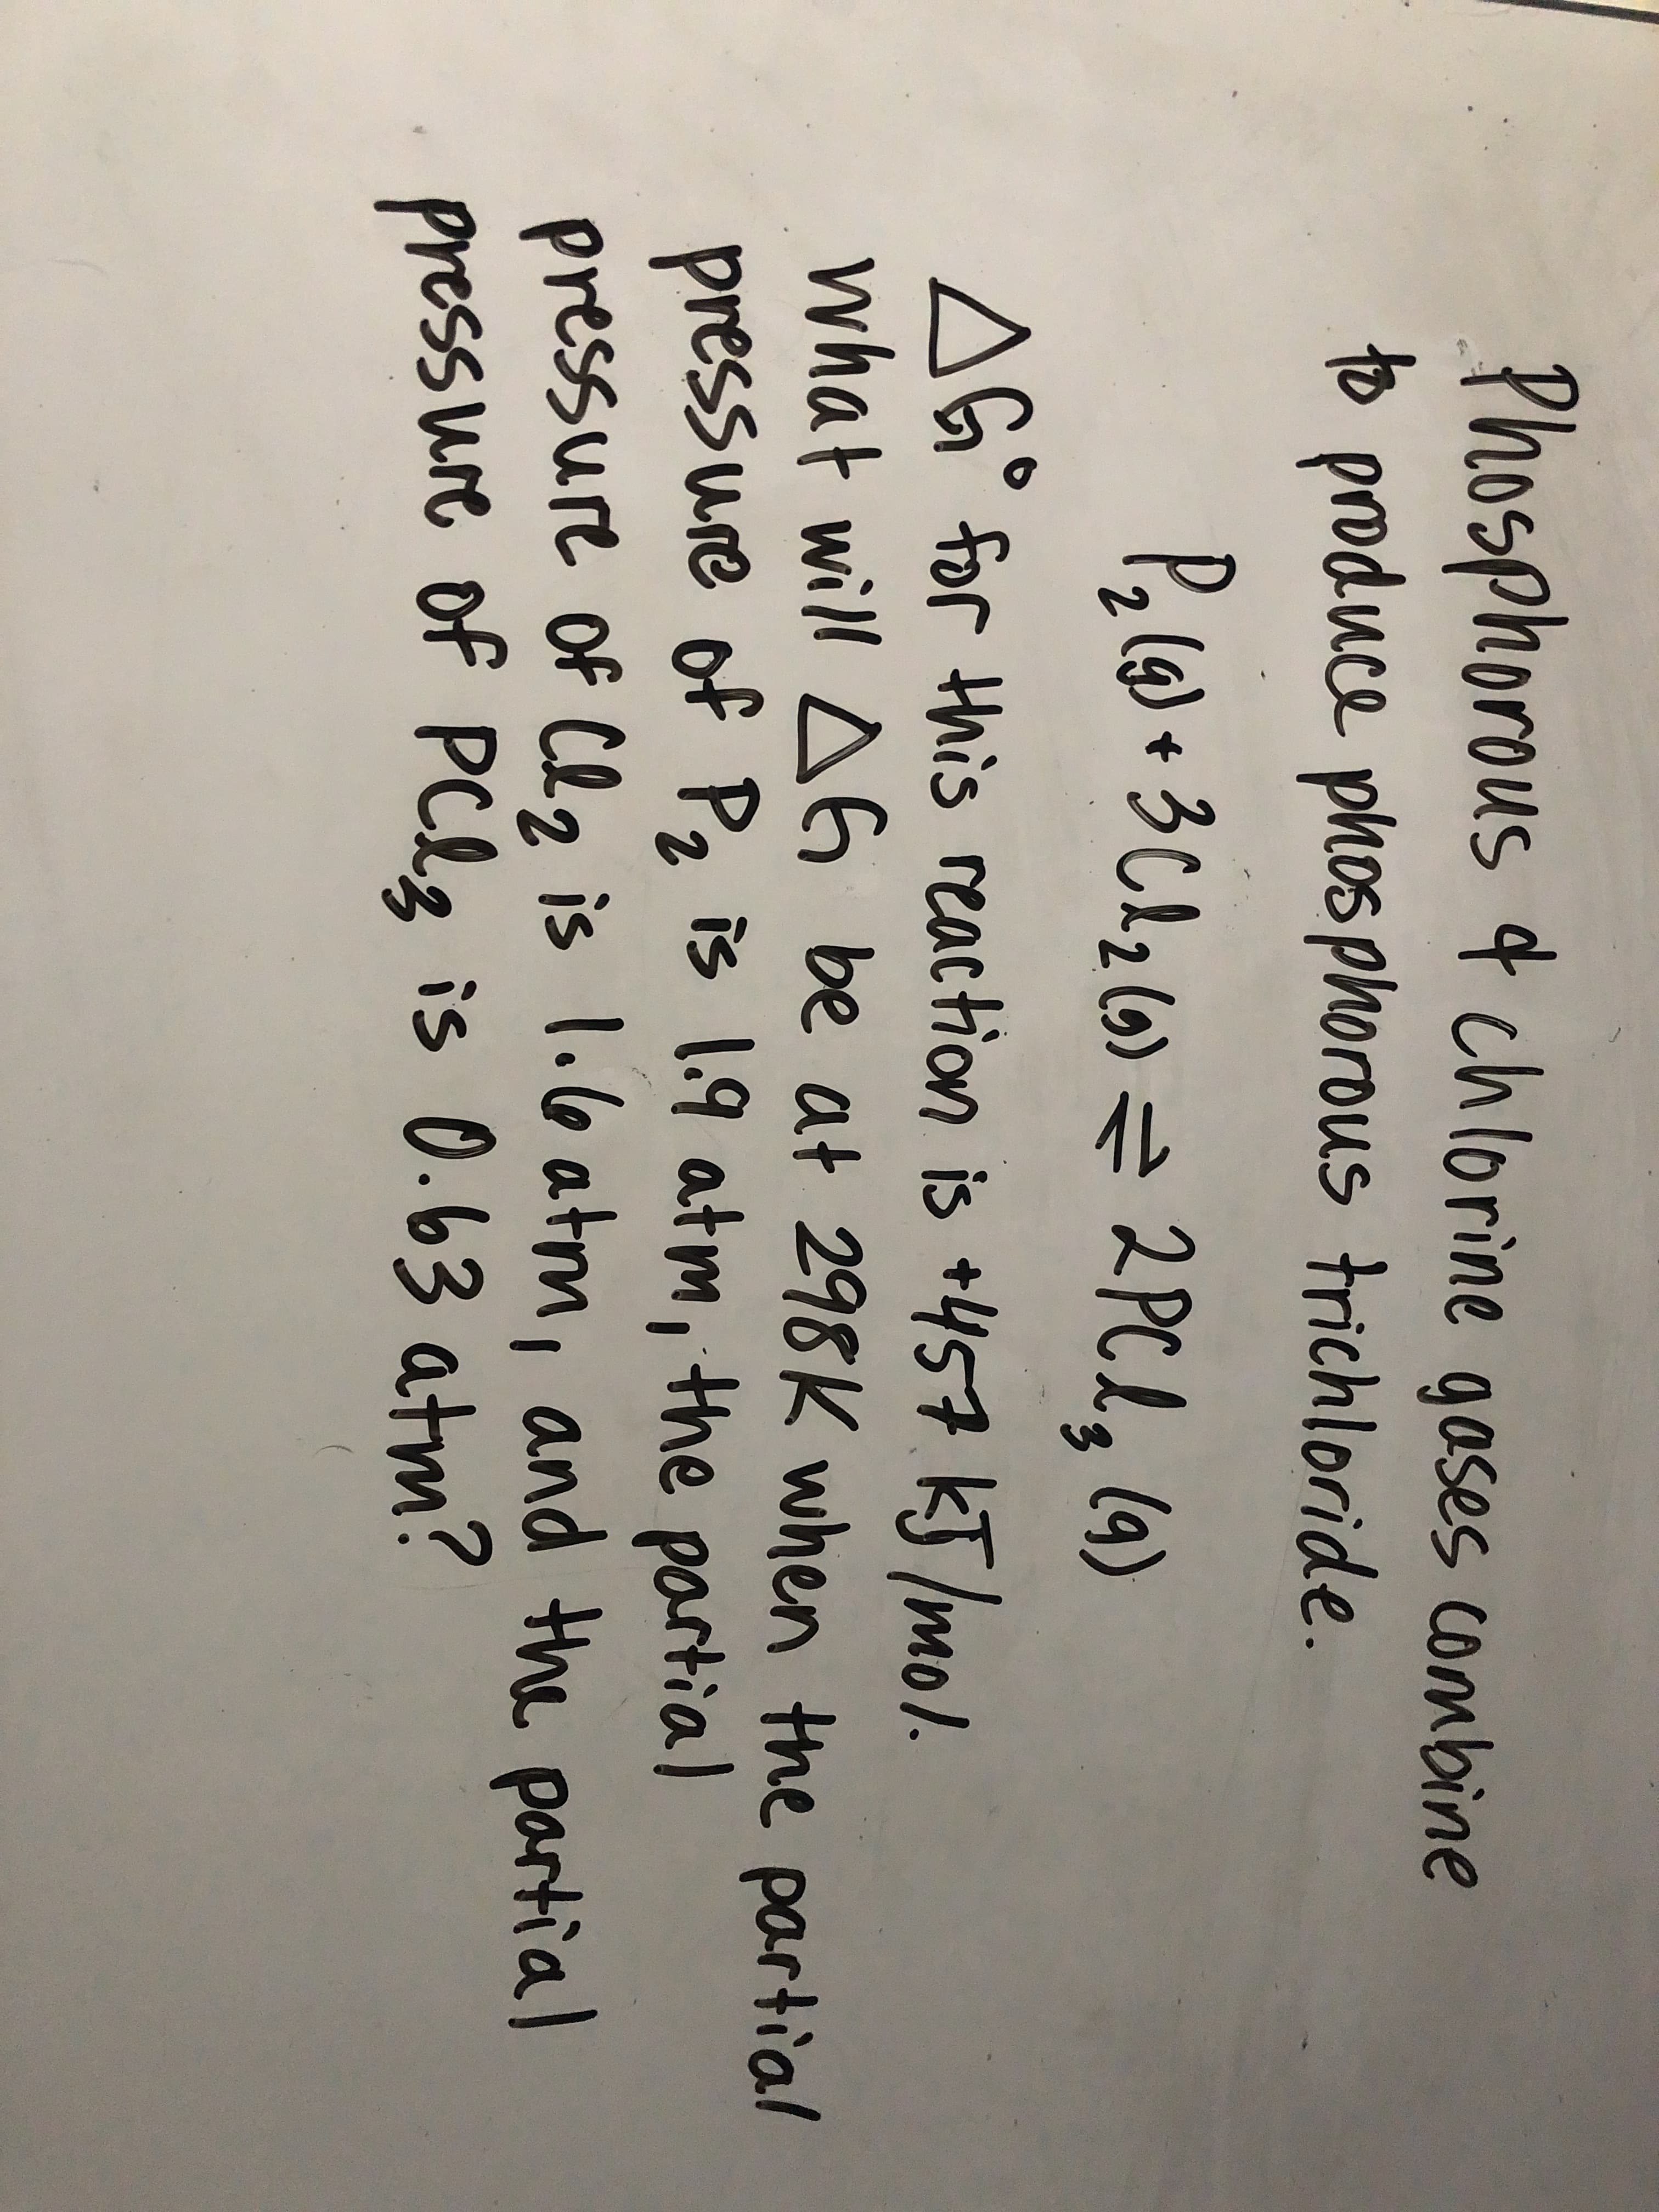 Phosphorous & chlorine gases combine
to produce phosphorous trichloride.
P₂(g) + 3Cl₂(g) ⇌ 2PCl₃(g)
△G° for this reaction is +457 kJ/mol.
What will △G be at 298K when the partial
pressure of P₂ is 1.9 atm, the partial
pressure of Cl₂ is 1.6 atm, and the partial
pressure of PCl₃ is 0.63 atm?